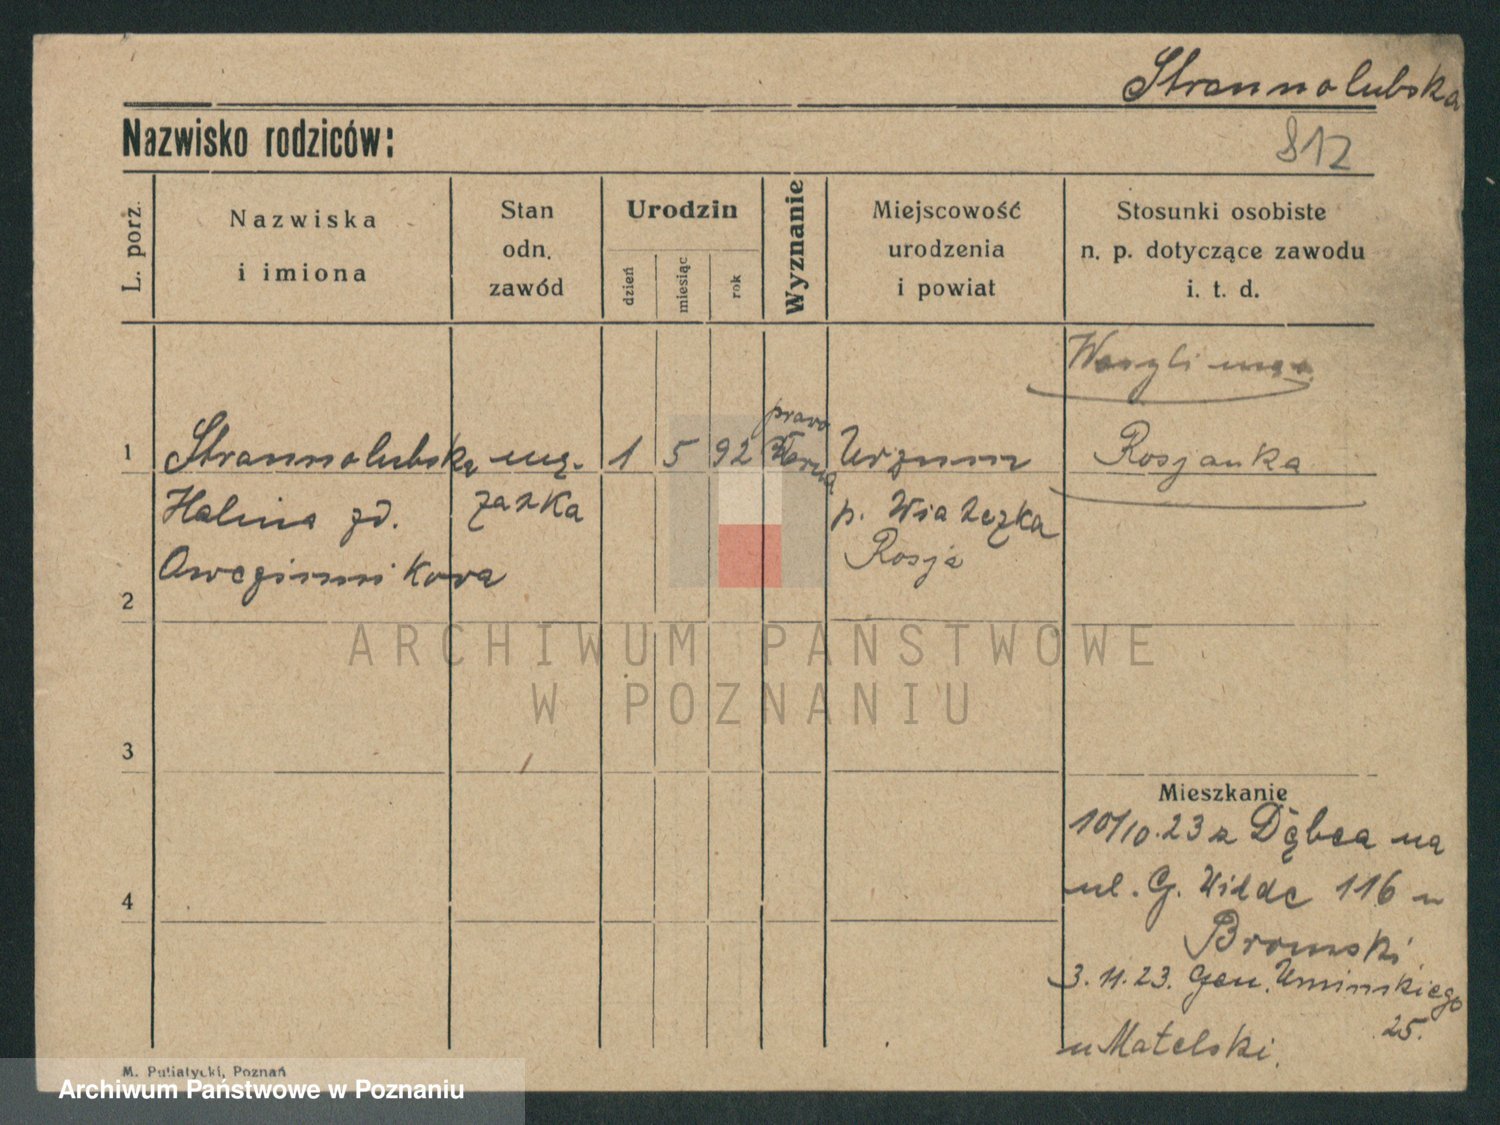 Strannolubska
Nazwisko rodziców:
812
L. porż.
Nazwiska
i imiona
Stan
odn.
zawód
Urodzin
dzień
miesiąc
rok
Wyznanie
Miejscowość
urodzenia
i powiat
Stosunki osobiste
n. p. dotyczące zawodu
i. t. d.
1
Strannolubska
Halina zd.
mę-
żatka
1
5
92
prawo
sławna
Urzum
p. Wiatezka
Rosja
Wasyli mąż
Rosjanka
2
3
4
Mieszkanie
10/10.23 z Dębca na
ul. G. Wilde 116 u
Bromski
3.11.23. Gen. Umińskiego
25.
u Matelski.
M. Putiatycki, Poznań
ARCHIWUM PAŃSTWOWE
W POZNANIU
Archiwum Państwowe w Poznaniu